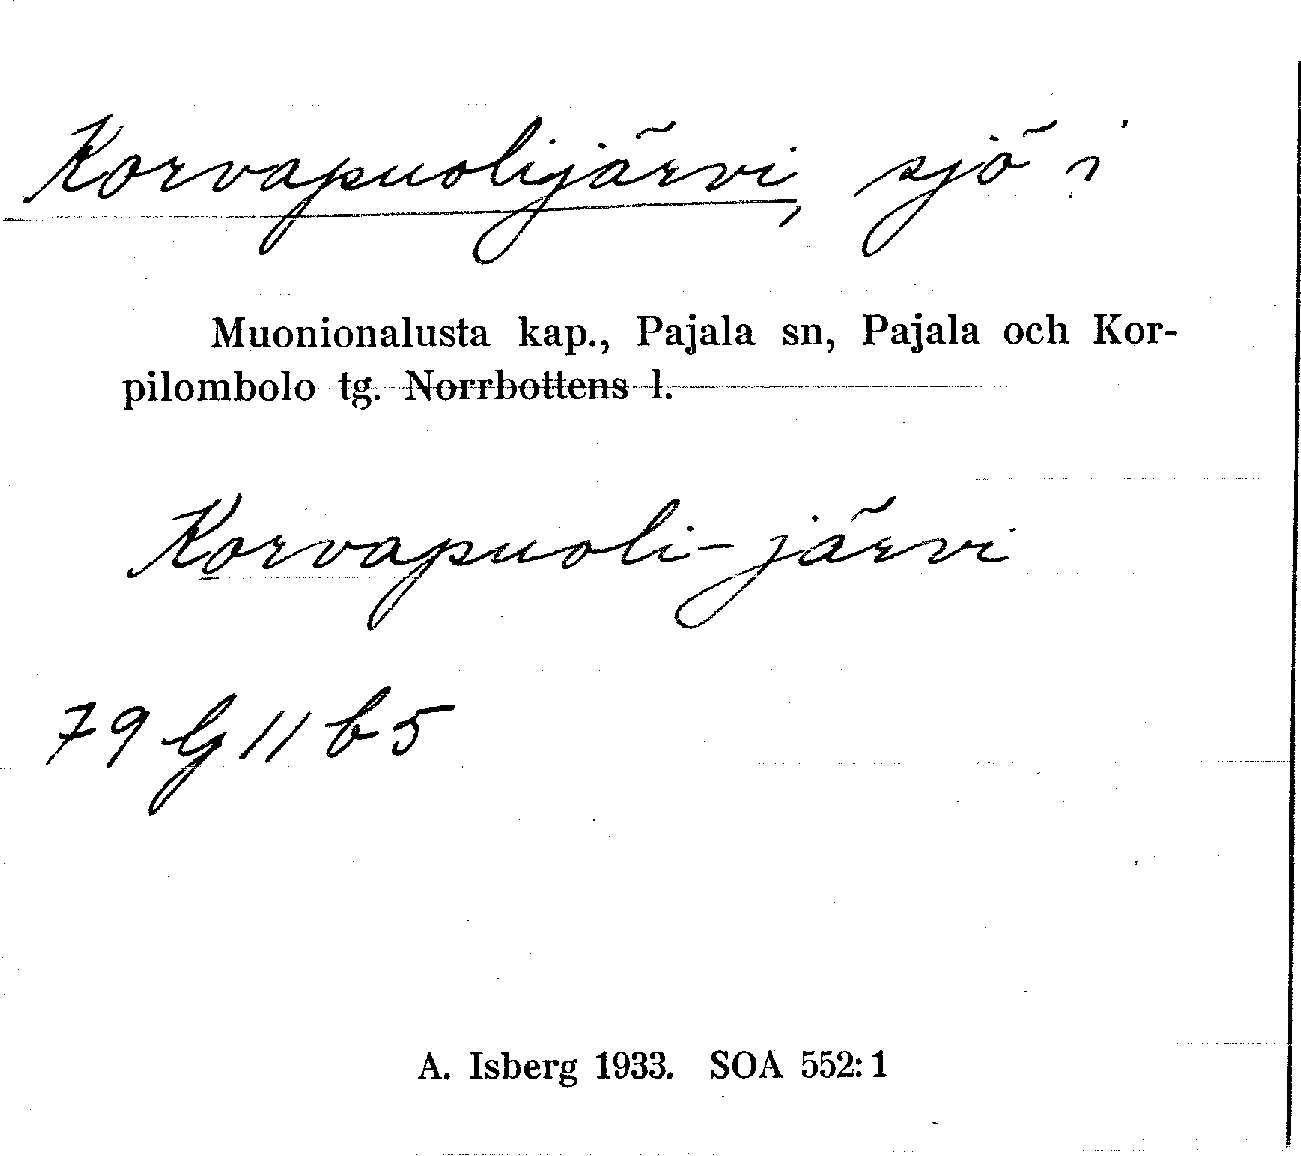 Korvapuolijärvi, sjö i
Muonionalusta kap., Pajala sn, Pajala och Kor-
pilombolo tg. Norrbottens l.
Korvapuoli-järvi
79 G 11 b 5
A. Isberg 1933. SOA 552:1